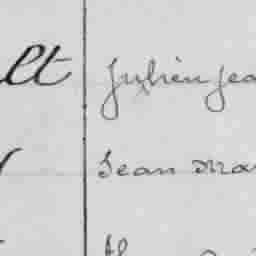 lt Julien Jea
Jean Mar